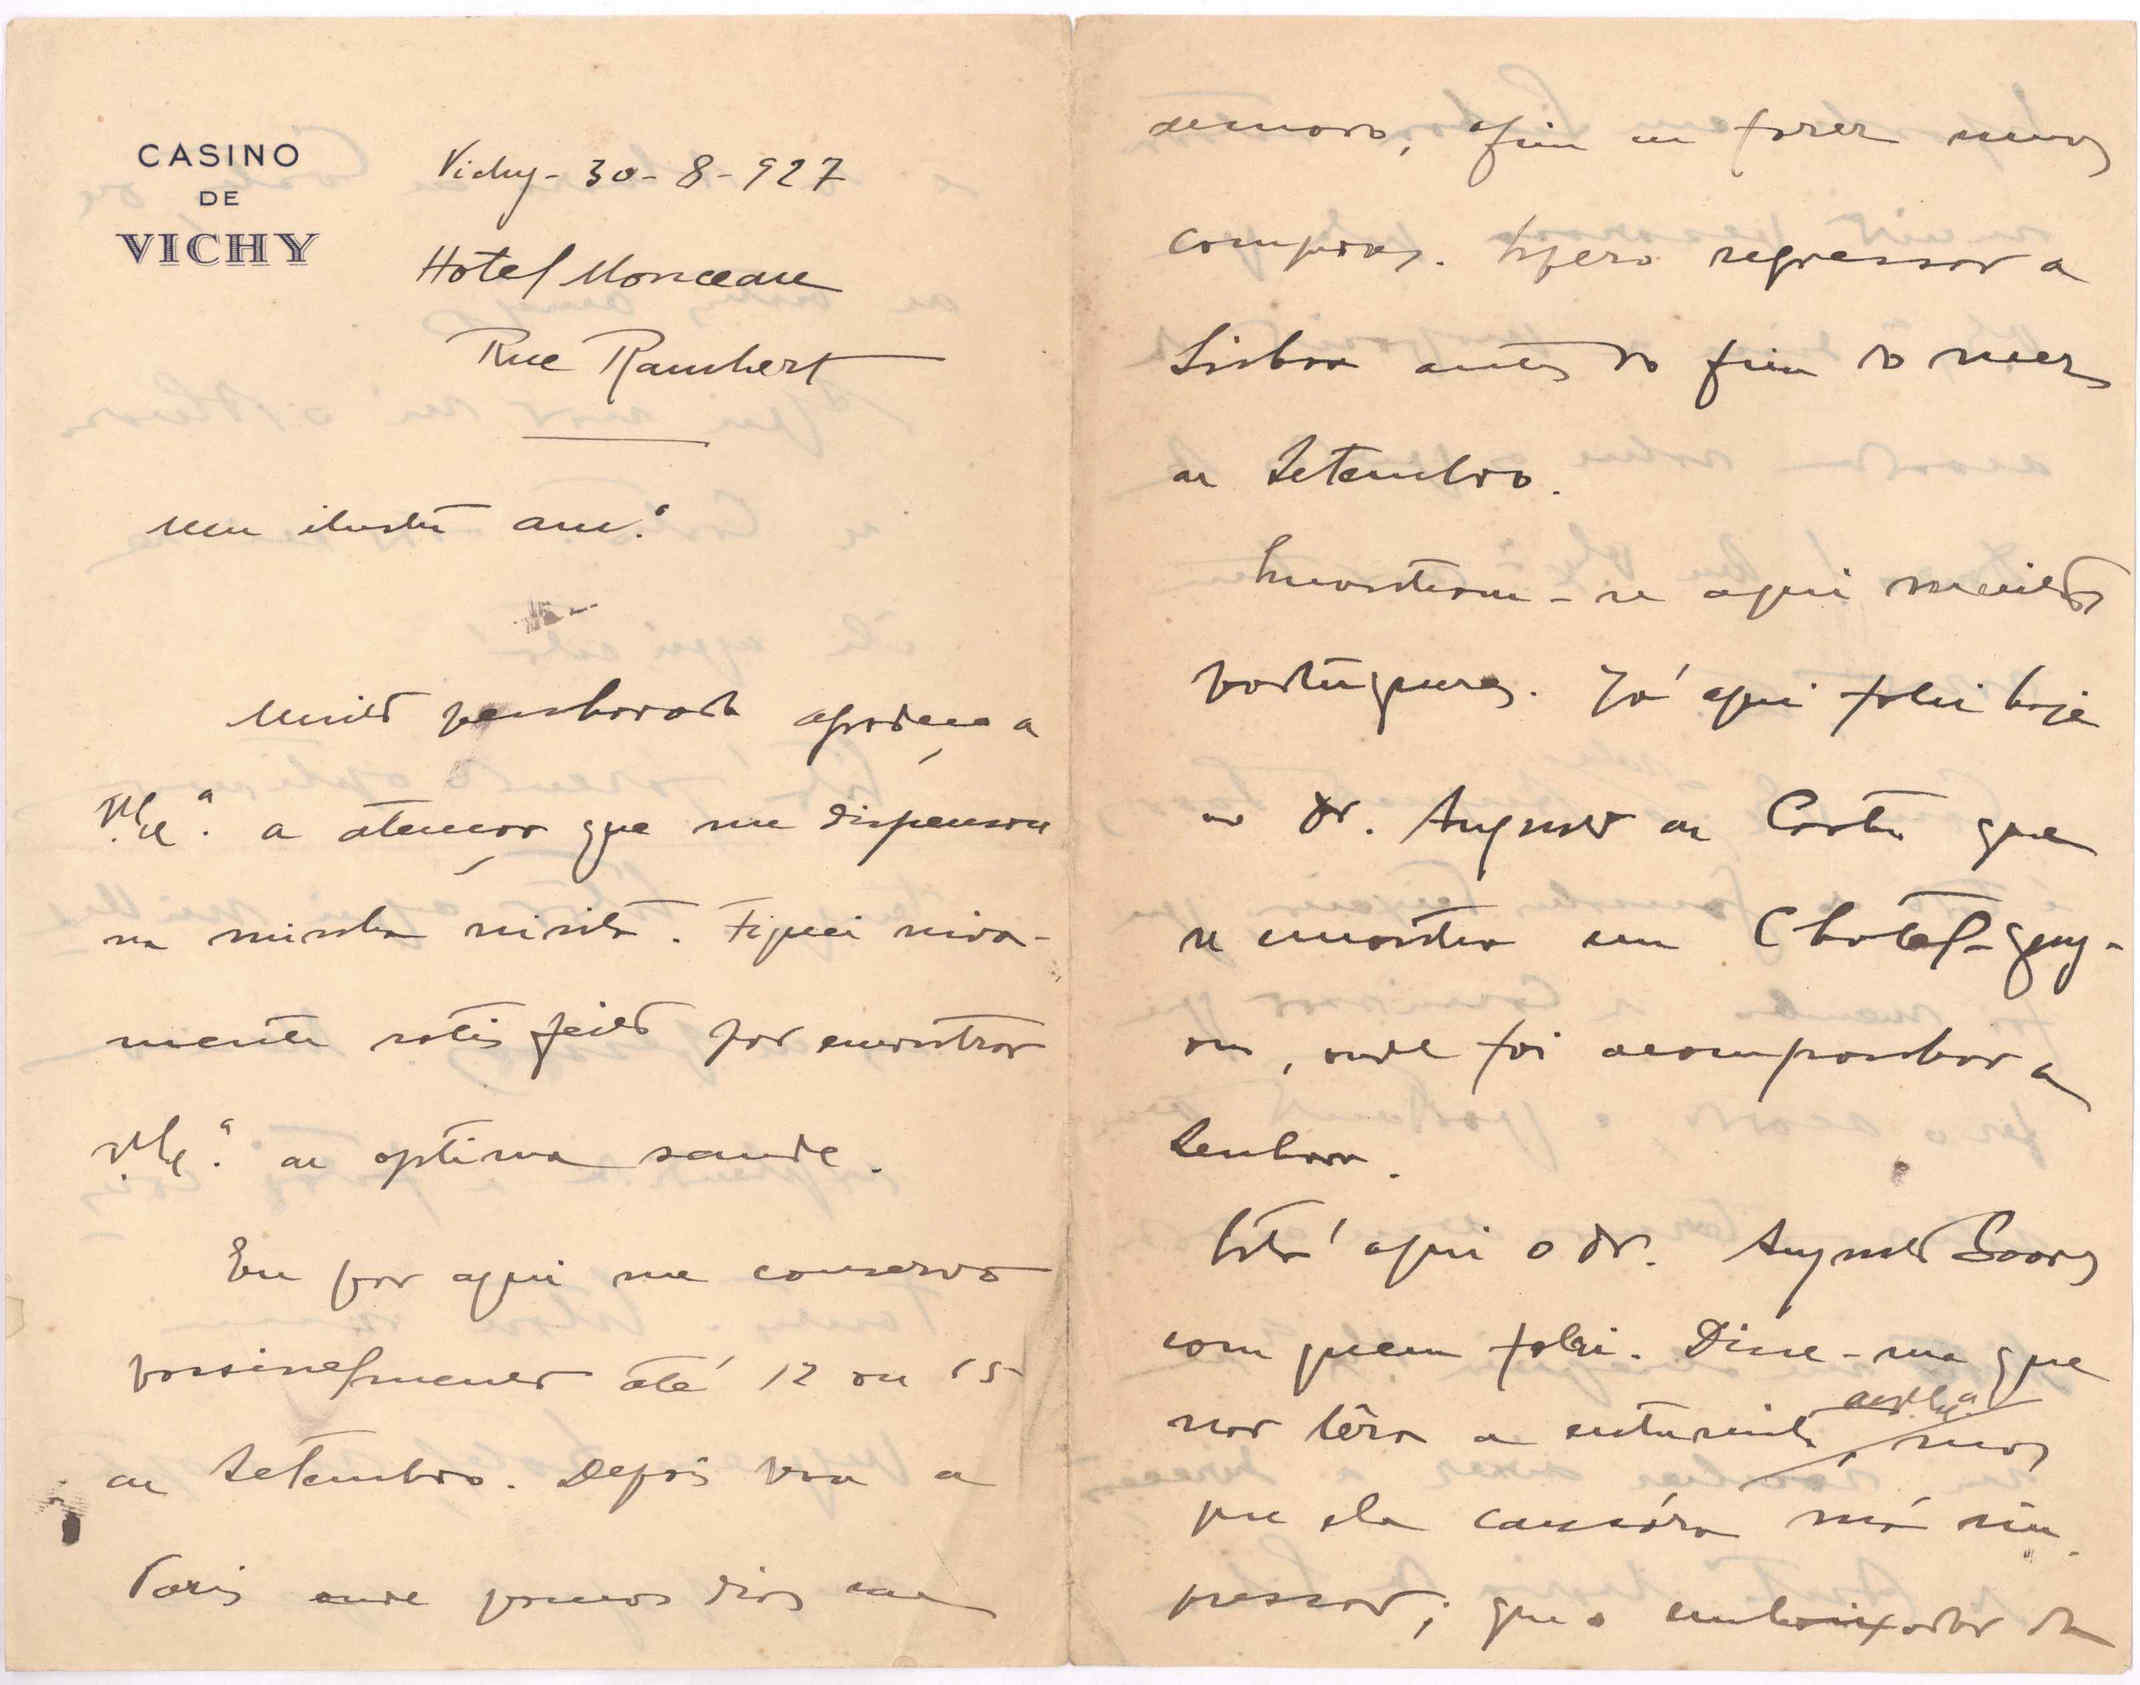 CASINO
DE
VICHY
Vichy - 30 - 8 - 927
Hotel Monceau
Rue Rambert
Meu ilustre am.º
Muito penhorado agradeço a
V. Ex.ª a atenção que me dispensou
na minha visita. Fiquei viva-
mente satisfeito por encontrar
V. Ex.ª de optima saude.
Eu por aqui me conservo
possivelmente até 12 ou 15
de Setembro. Depois vou a
Paris onde poucos dias me
demoro, afim de fazer umas
compras. Espero regressar a
Lisboa antes do fim do mez
de Setembro.
Encontram-se aqui muitos
portuguezes. Já aqui falei hoje
ao Dr. Augusto de Castro que
se encontra em Chatel-guy-
on, onde foi acompanhar a
Senhora.
Está aqui o dr. Augusto Soares
com quem falei. Disse-me que
não lêra a entrevista de V. Ex.ª, mas
que ela causára má im-
pressão; que o embaixador da